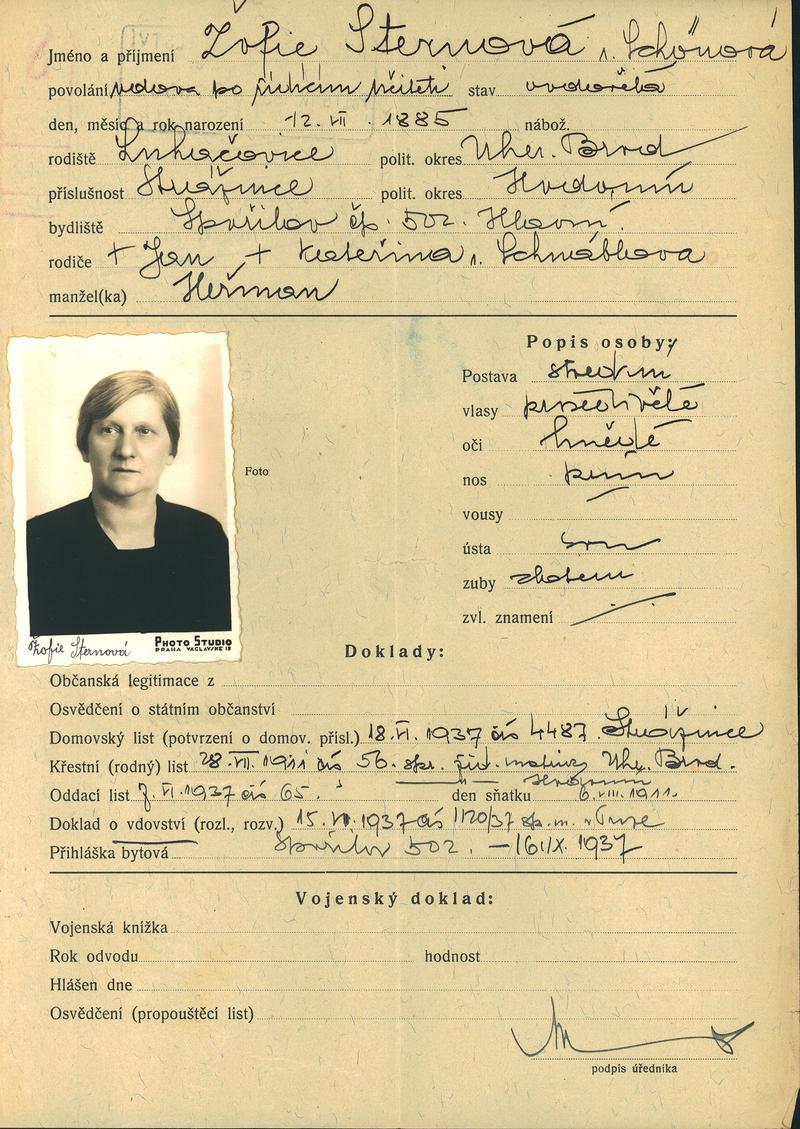 Jméno a příjmení Žofie Sternová r. Schönová
povolání vdova po řídícím učiteli stav ovdovělá
den, měsíc a rok narození 12. VII. 1885 nábož.
rodiště Luhačovice polit. okres Uher. Brod
příslušnost polit. okres Hodonín
bydliště Spořilov čp. 502. Hlavní.
rodiče + Jan + Kateřina r.
manžel(ka) Heřman
Popis osoby:
Postava střední
vlasy prošedivělé
oči hnědé
Foto
nos
vousy
ústa
zuby
zvl. znamení
Žofie Sternová PHOTO STUDIO
PRAHA VÁCLAVSKÉ 19
Doklady:
Občanská legitimace z
Osvědčení o státním občanství
Domovský list (potvrzení o domov. přísl.) 18. VI. 1937 čís 4487
Křestní (rodný) list 28. VII. 1911 čís 56. spr. žid. matriky Uh. Brod.
Oddací list 7. VI. 1937 čís 65. den sňatku 6. VIII. 1911.
Doklad o vdovství (rozl., rozv.) 15. 1937 čís 1120/37
Přihláška bytová Spořilov 502. – 16/IX. 1937
Vojenský doklad:
Vojenská knížka
Rok odvodu hodnost
Hlášen dne
Osvědčení (propouštěcí list)
podpis úředníka